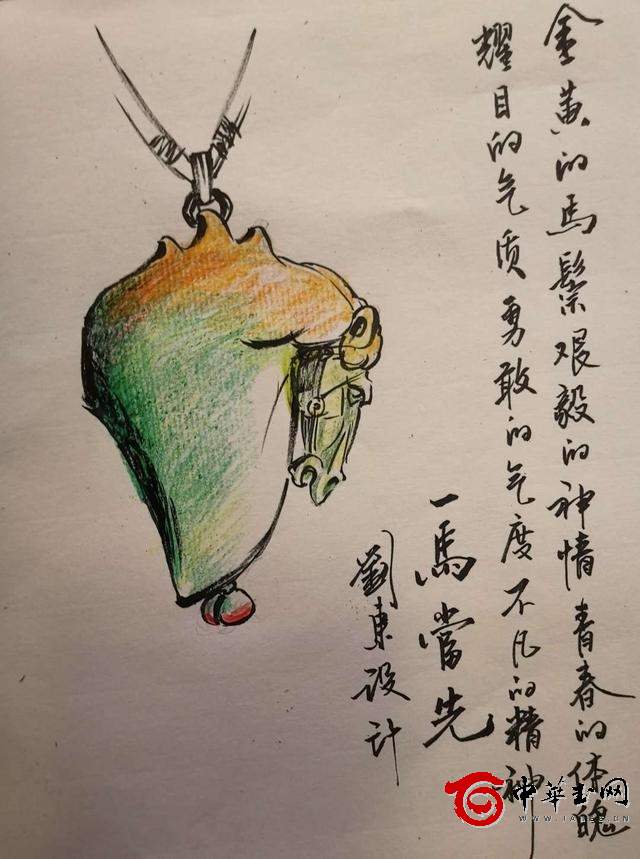 金黄的馬鬃艰毅的神情青春的体魄
耀目的气质勇敢的气度不凡的精神
一馬當先
劉東设计
中華玉网